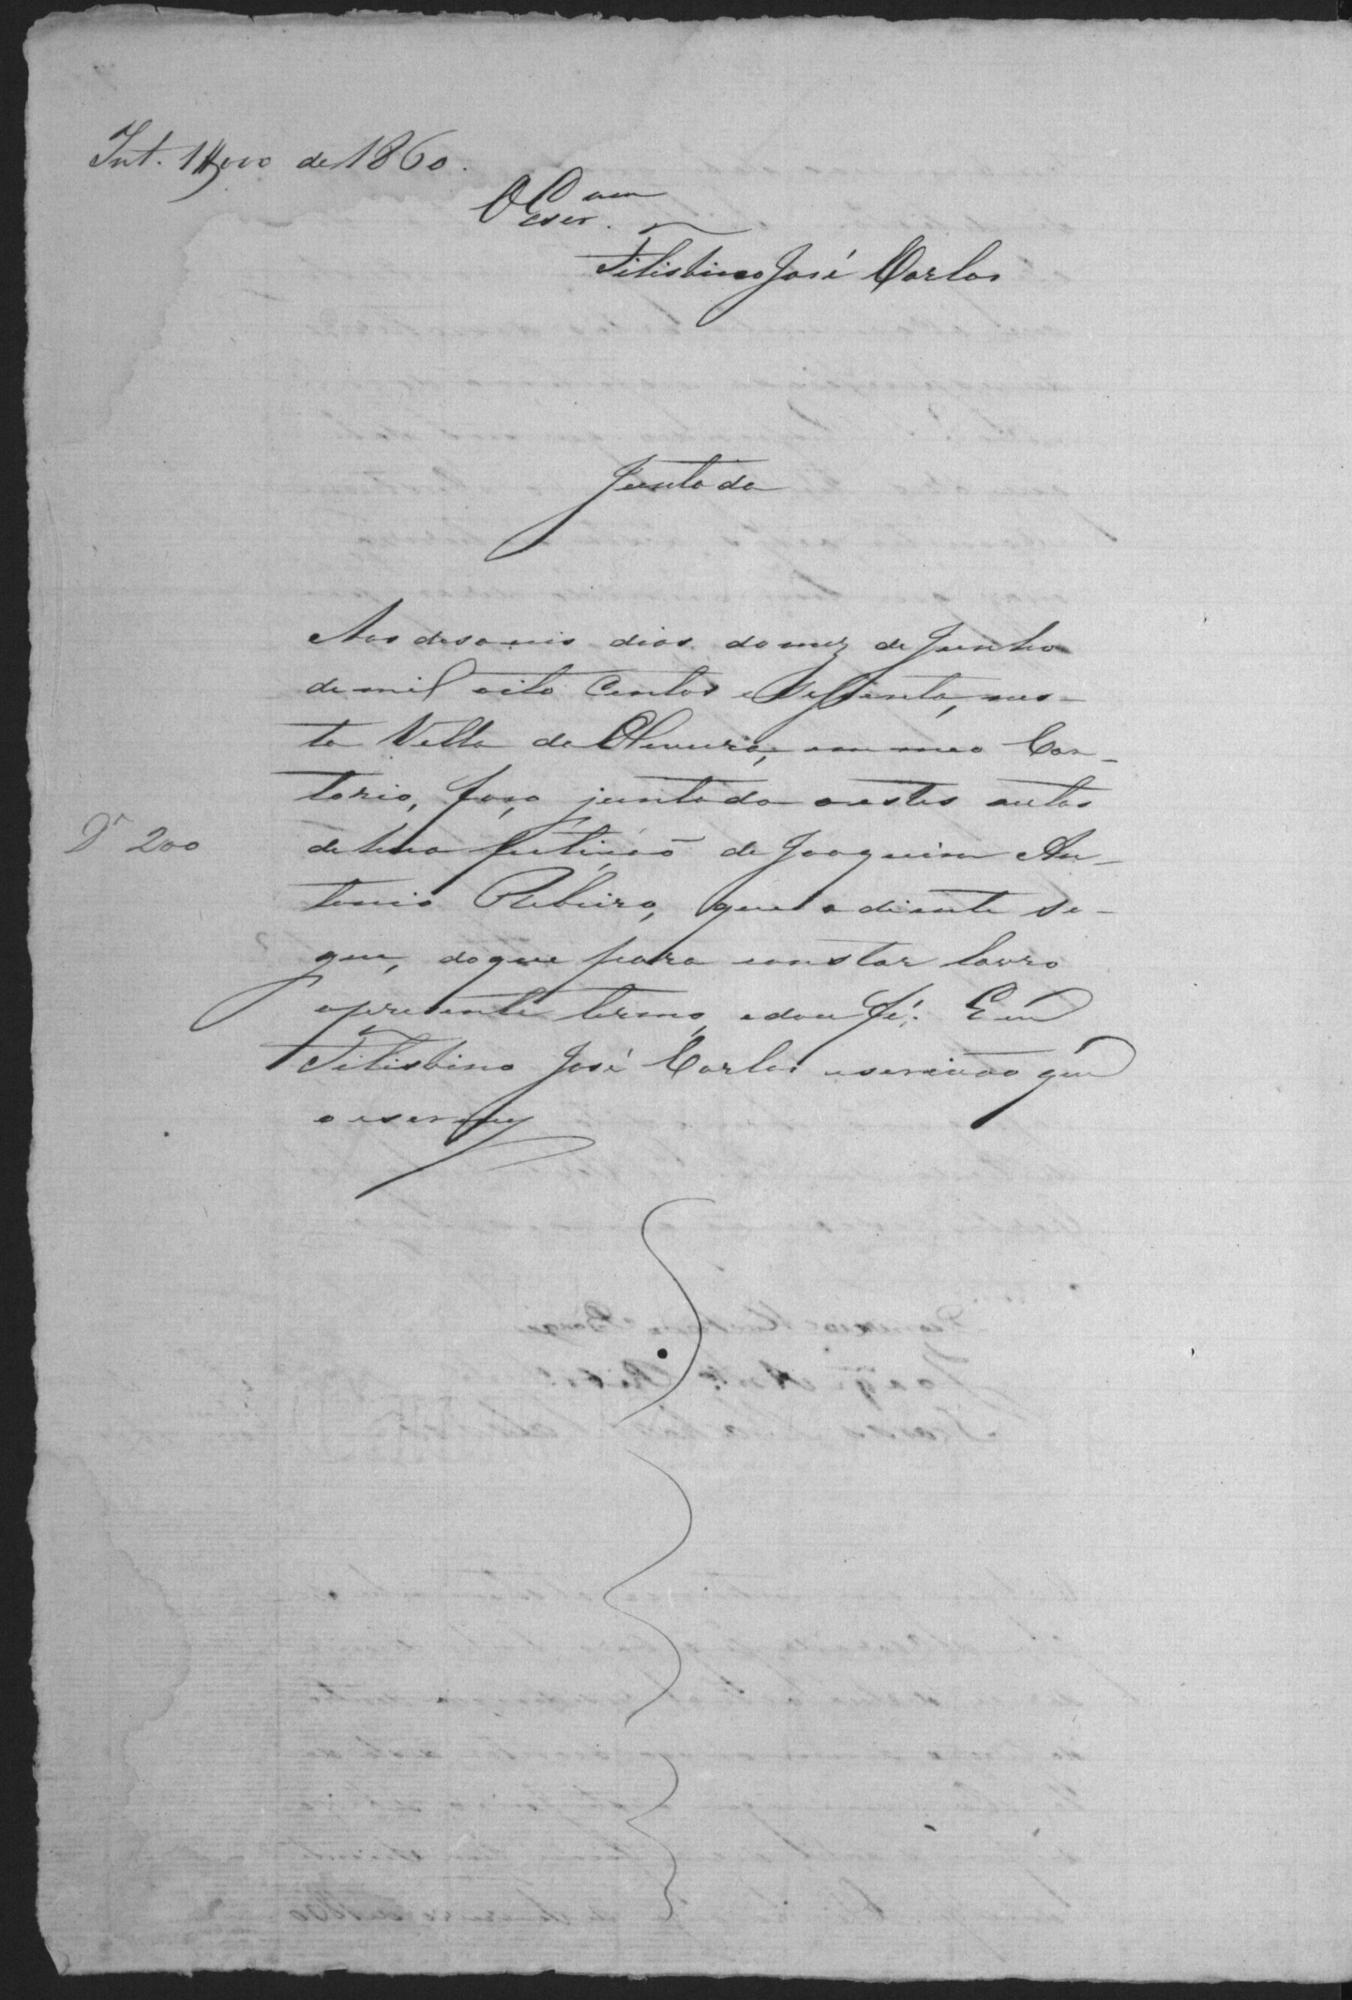 de 1860.
Felisbino José Carlos
Juntada
Aos deseseis dias do mez de Junho
de mil oito centos e sessenta, nes-
ta Villa de Oliveira, em meo Car-
torio, faço juntada a estes autos
D.r 200
de huma petição de Joaquim An-
tonio Ribeiro, que a diante se-
gue, do que para constar lavro
o presente termo, e dou fé: E eu
Felisbino José Carlos escrivão que
o escrevy